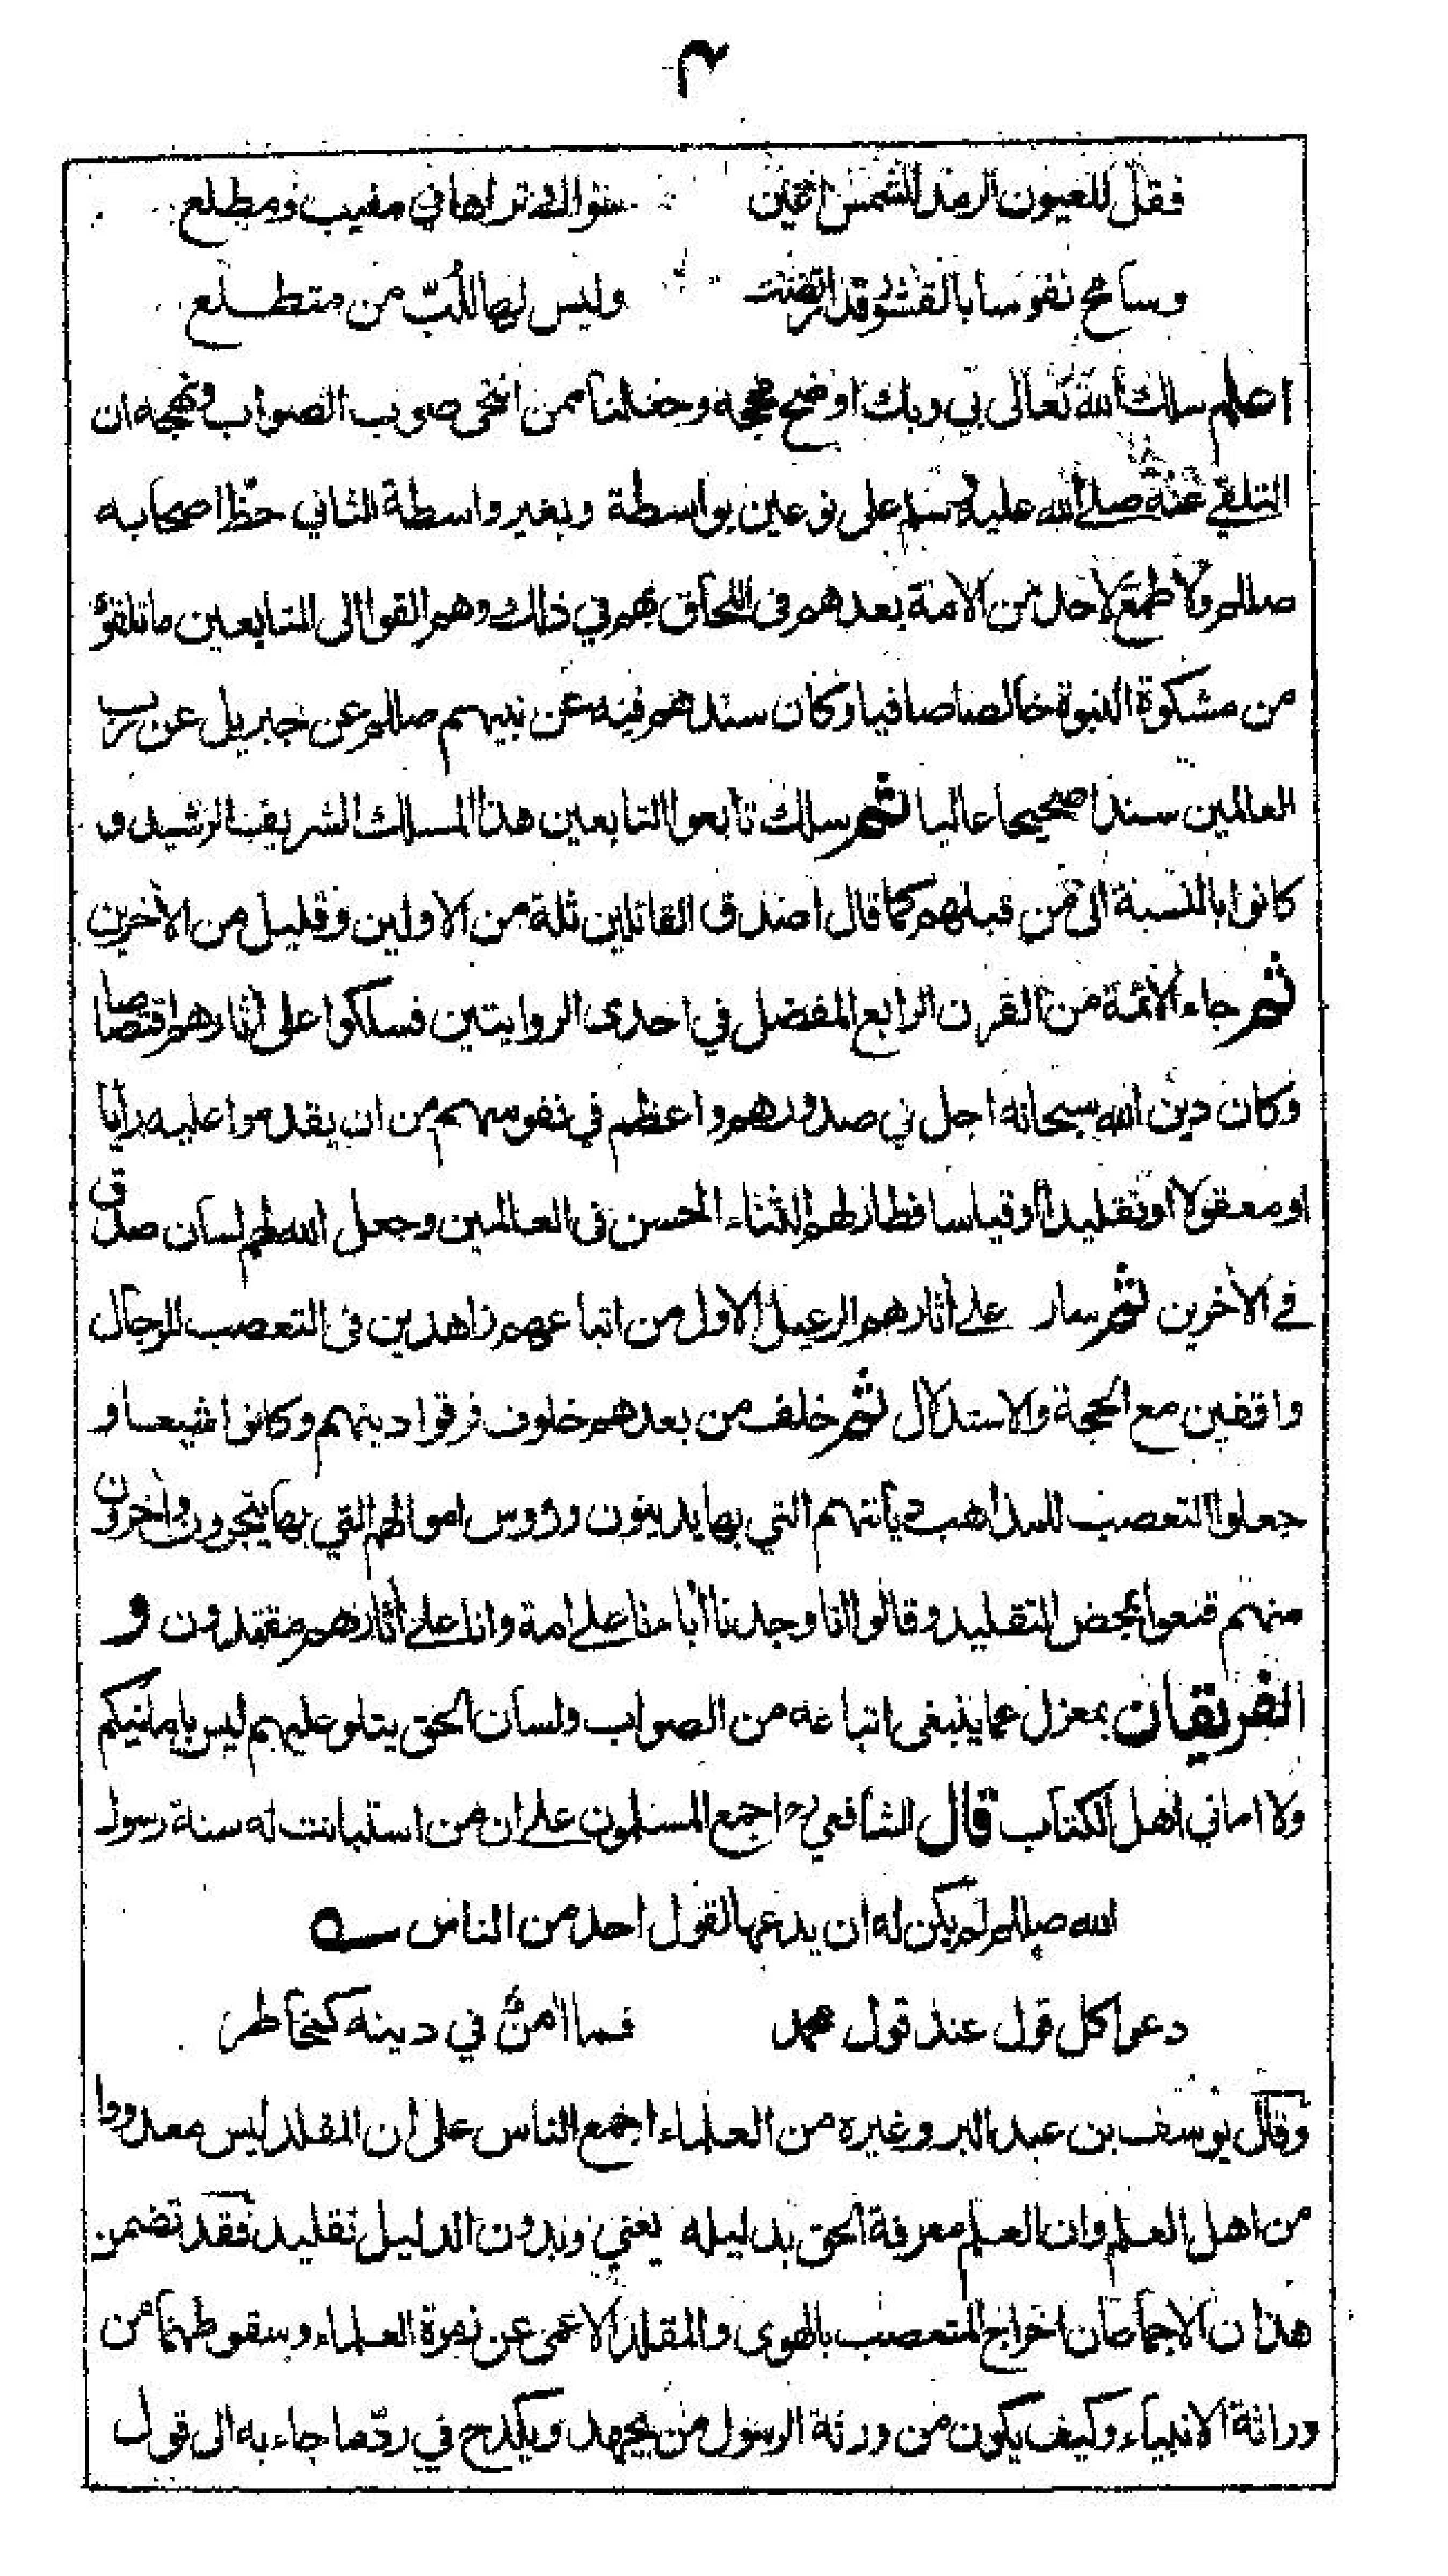 ٣
فقل للعيون الرمد للشمس اعين سواك تراها في مغيب ومطلع
وسامح نفوسا بالقشور قد ارتضت وليس لها للُبّ من متطلع
اعلم سلك الله تعالى بي وبك اوضح محجه وجعلنا ممن انتحى صوب الصواب ونهجه ان
التلقي عنه صلى الله عليه وسلم على نوعين بواسطة وبغير واسطة الثاني حظّ اصحابه
صللم ولا طمع لاحد من الامة بعدهم فى اللحاق بهم في ذلك وهم القوا الى التابعين ما تلقوْ
من مشكوة النبوة خالصا صافيا وكان سندهم فيه عن نبيهم صللم عن جبريل عن رب
العالمين سندا صحيحا عاليا ثم سلك تابعوا التابعين هذا المسلك الشريف الرشيد و
كانوا بالنسبة الى من قبلهم كما قال اصدق القائلين ثلة من الاولين وقليل من الأخرين
ثم جاء الائمة من القرن الرابع المفضل في احدى الروايتين فسلكوا على اثارهم اقتصاصا
وكان دين الله سبحانه اجل في صدورهم واعظم في نفوسهم من ان يقدموا عليه رأيا
او معقولا او تقليدا او قياسا فطار لهم الثناء الحسن فى العالمين وجعل الله لهم لسان صدق
في الأخرين ثم سار على أثارهم الرعيل الاول من اتباعهم زاهدين فى التعصب للرجال
واقفين مع الحجة والاستدلال ثم خلف من بعدهم خلوف فرقوا دينهم وكانوا شيعا و
جعلوا التعصب للمذاهب ديانتهم التي بها يدينون ورؤوس اموالهم التي بها يتجرون وأخرون
منهم قنعوا بمحض التقليد وقالوا انا وجدنا أباءنا على امة وانا على أثارهم مقتدون و
الفريقان بمعزل عما ينبغي اتباعه من الصواب ولسان الحق يتلو عليهم ليس بامانيكم
ولا اماني اهل الكتاب قال الشافعي رح اجمع المسلمون على ان من استبانت له سنة رسول
الله صللم لم يكن له ان يدعها لقول احد من الناس ــه
دعوا كل قول عند قول محمد فما أمنٌ في دينه كمخاطر
وقال يوسف بن عبد البر وغيره من العلماء اجمع الناس على ان المقلد ليس معدودا
من اهل العلم وان العلم معرفة الحق بدليله يعني وبدون الدليل تقليد فقد تضمن
هذان الاجماعان اخراج المتعصب بالهوى والمقلد الاعمى عن زمرة العلماء وسقوطهما من
وراثة الانبياء وكيف يكون من ورثة الرسول من يجهد ويكدح في ردّ ما جاء به الى قول